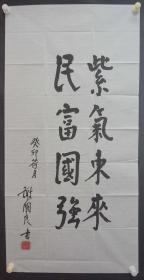 紫氣東來
民富國強
癸卯荷月
謝國民書